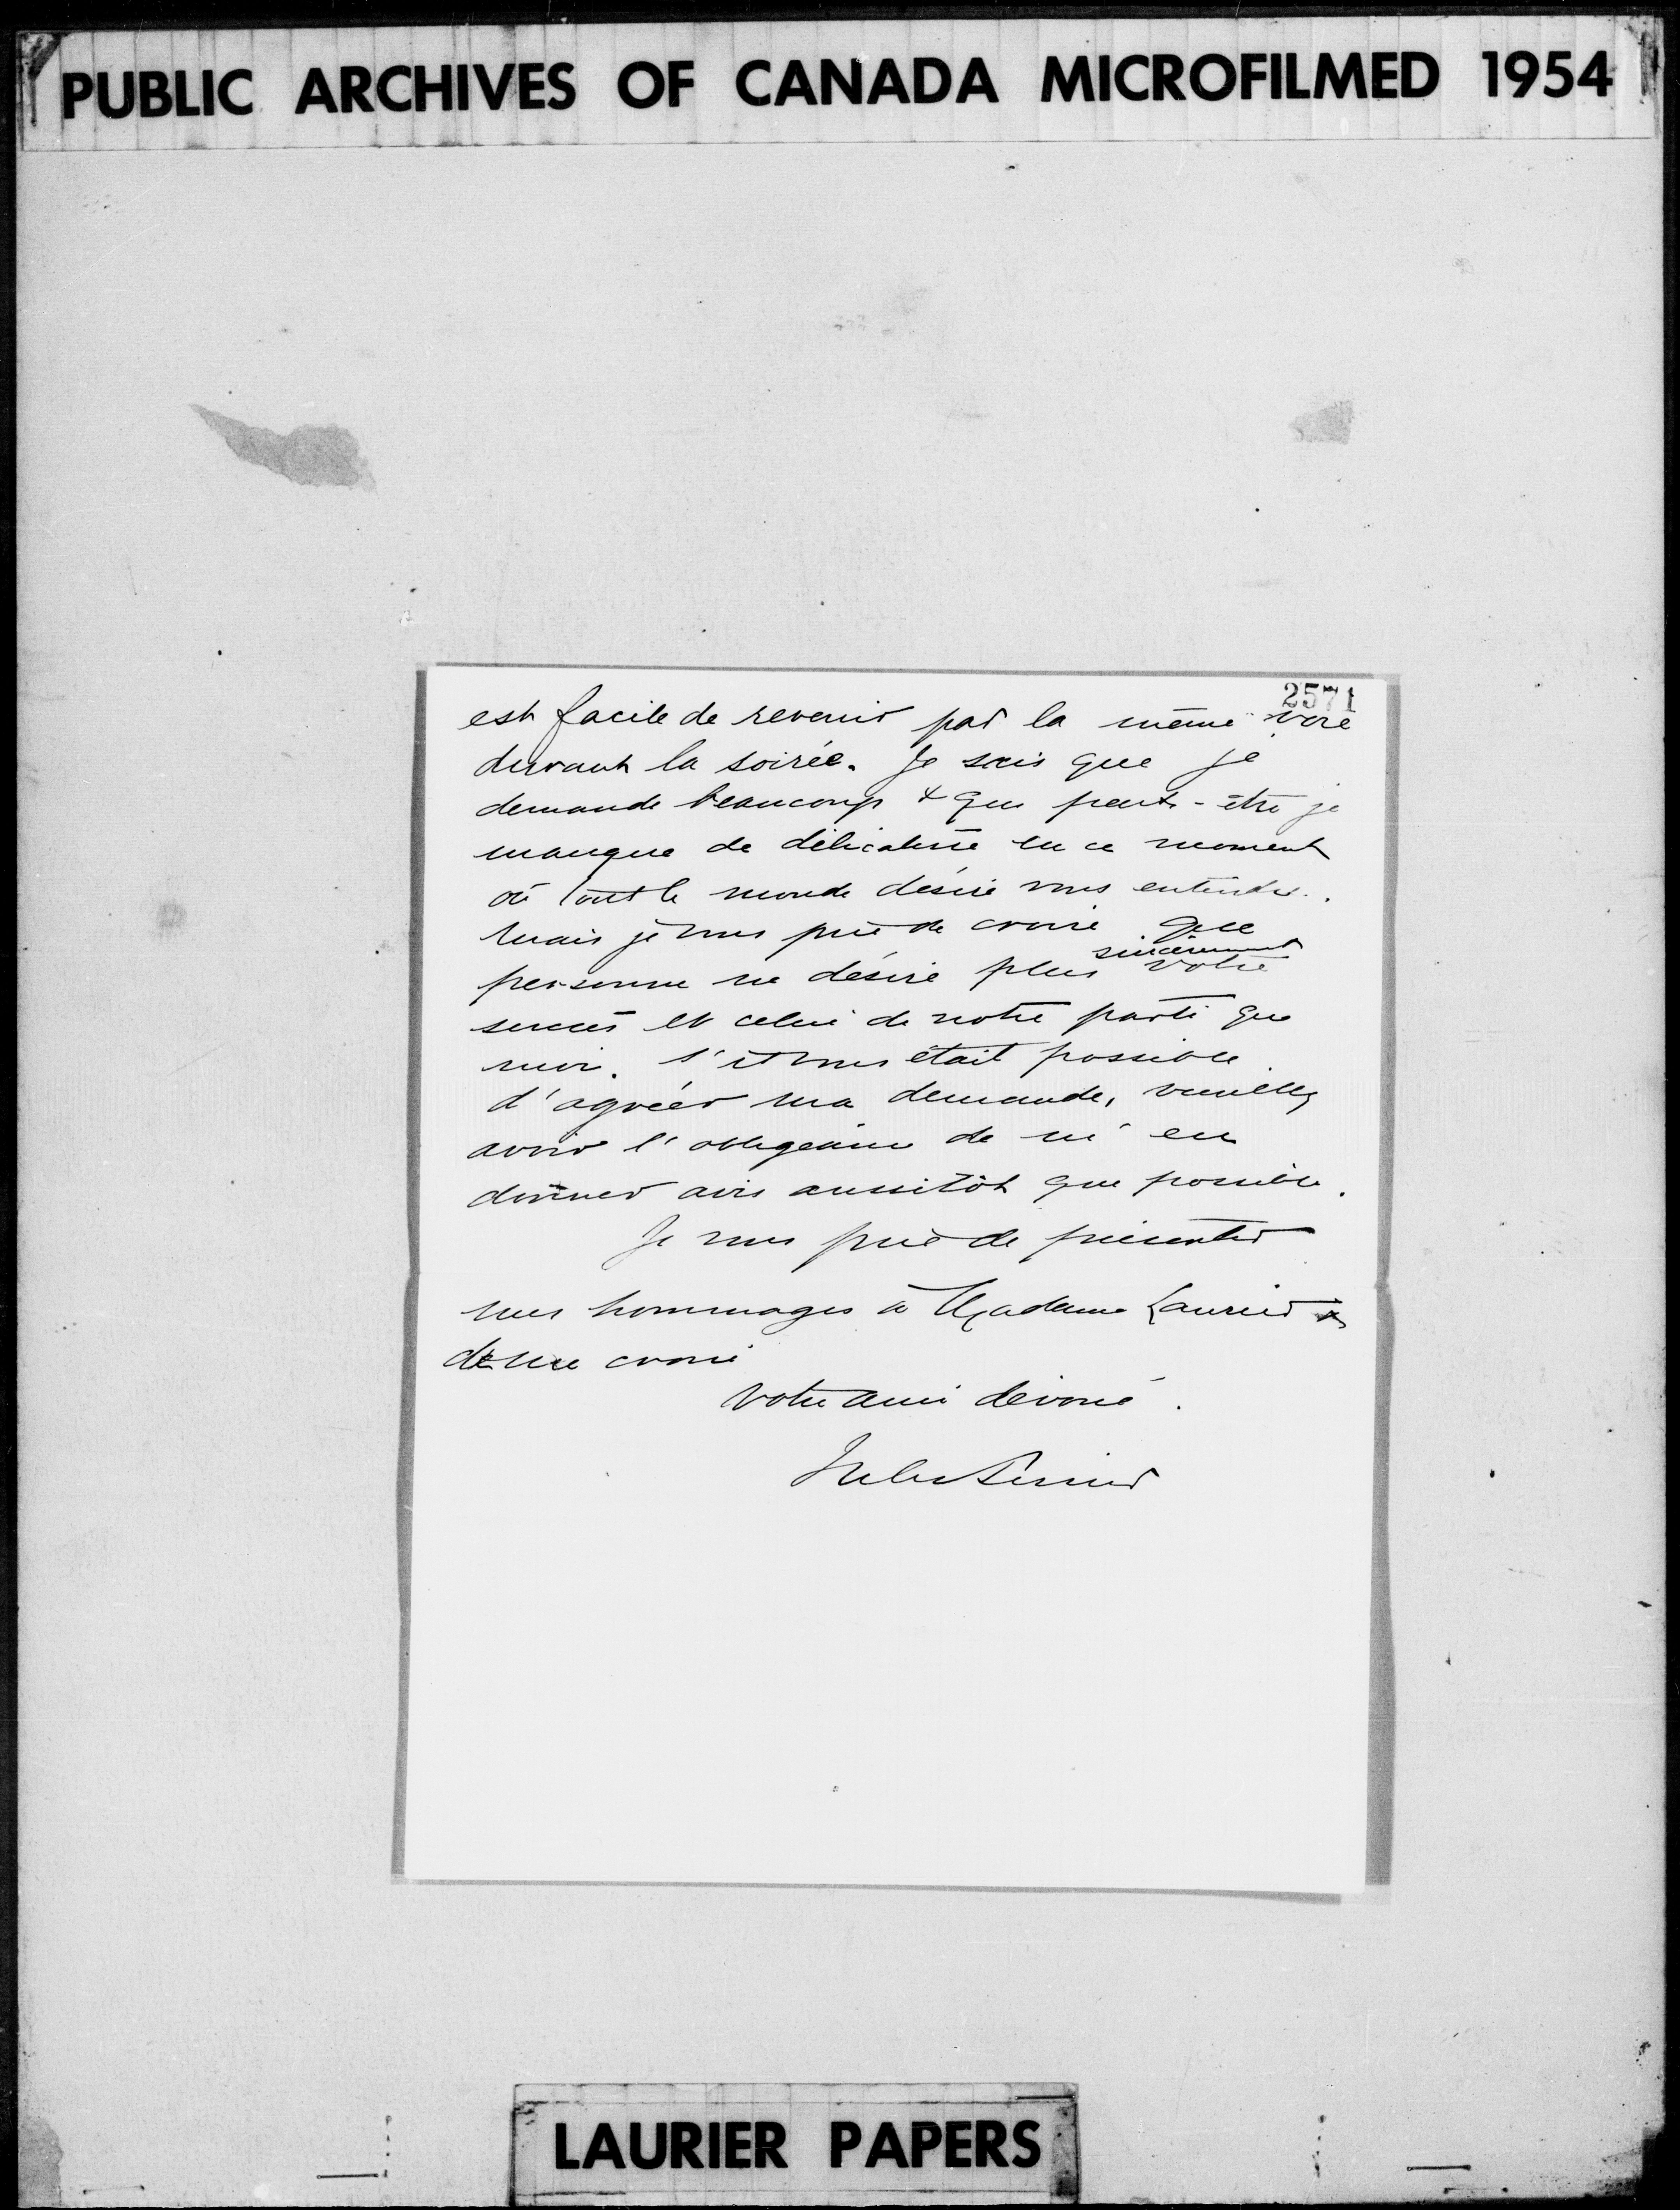 PUBLIC ARCHIVES OF CANADA MICROFILMED 1954
2571
est facile de revenir par la même voie
durant la soirée. Je sais que je
demande beaucoup & que peut-être je
manque de délicatesse en ce moment
où tout le monde désire vous entendre.
Mais je vous prie de croire que
sincèrement
personne ne désire plus votre
succès et celui de notre parti que
moi. S'il vous était possible
d'agréer ma demande, veuillez
avoir l'obligeance de m'en
donner avis aussitôt que possible.
Je vous prie de présenter
mes hommages à Madame Laurier &
de me croire
Votre ami dévoué.
Jules
LAURIER PAPERS